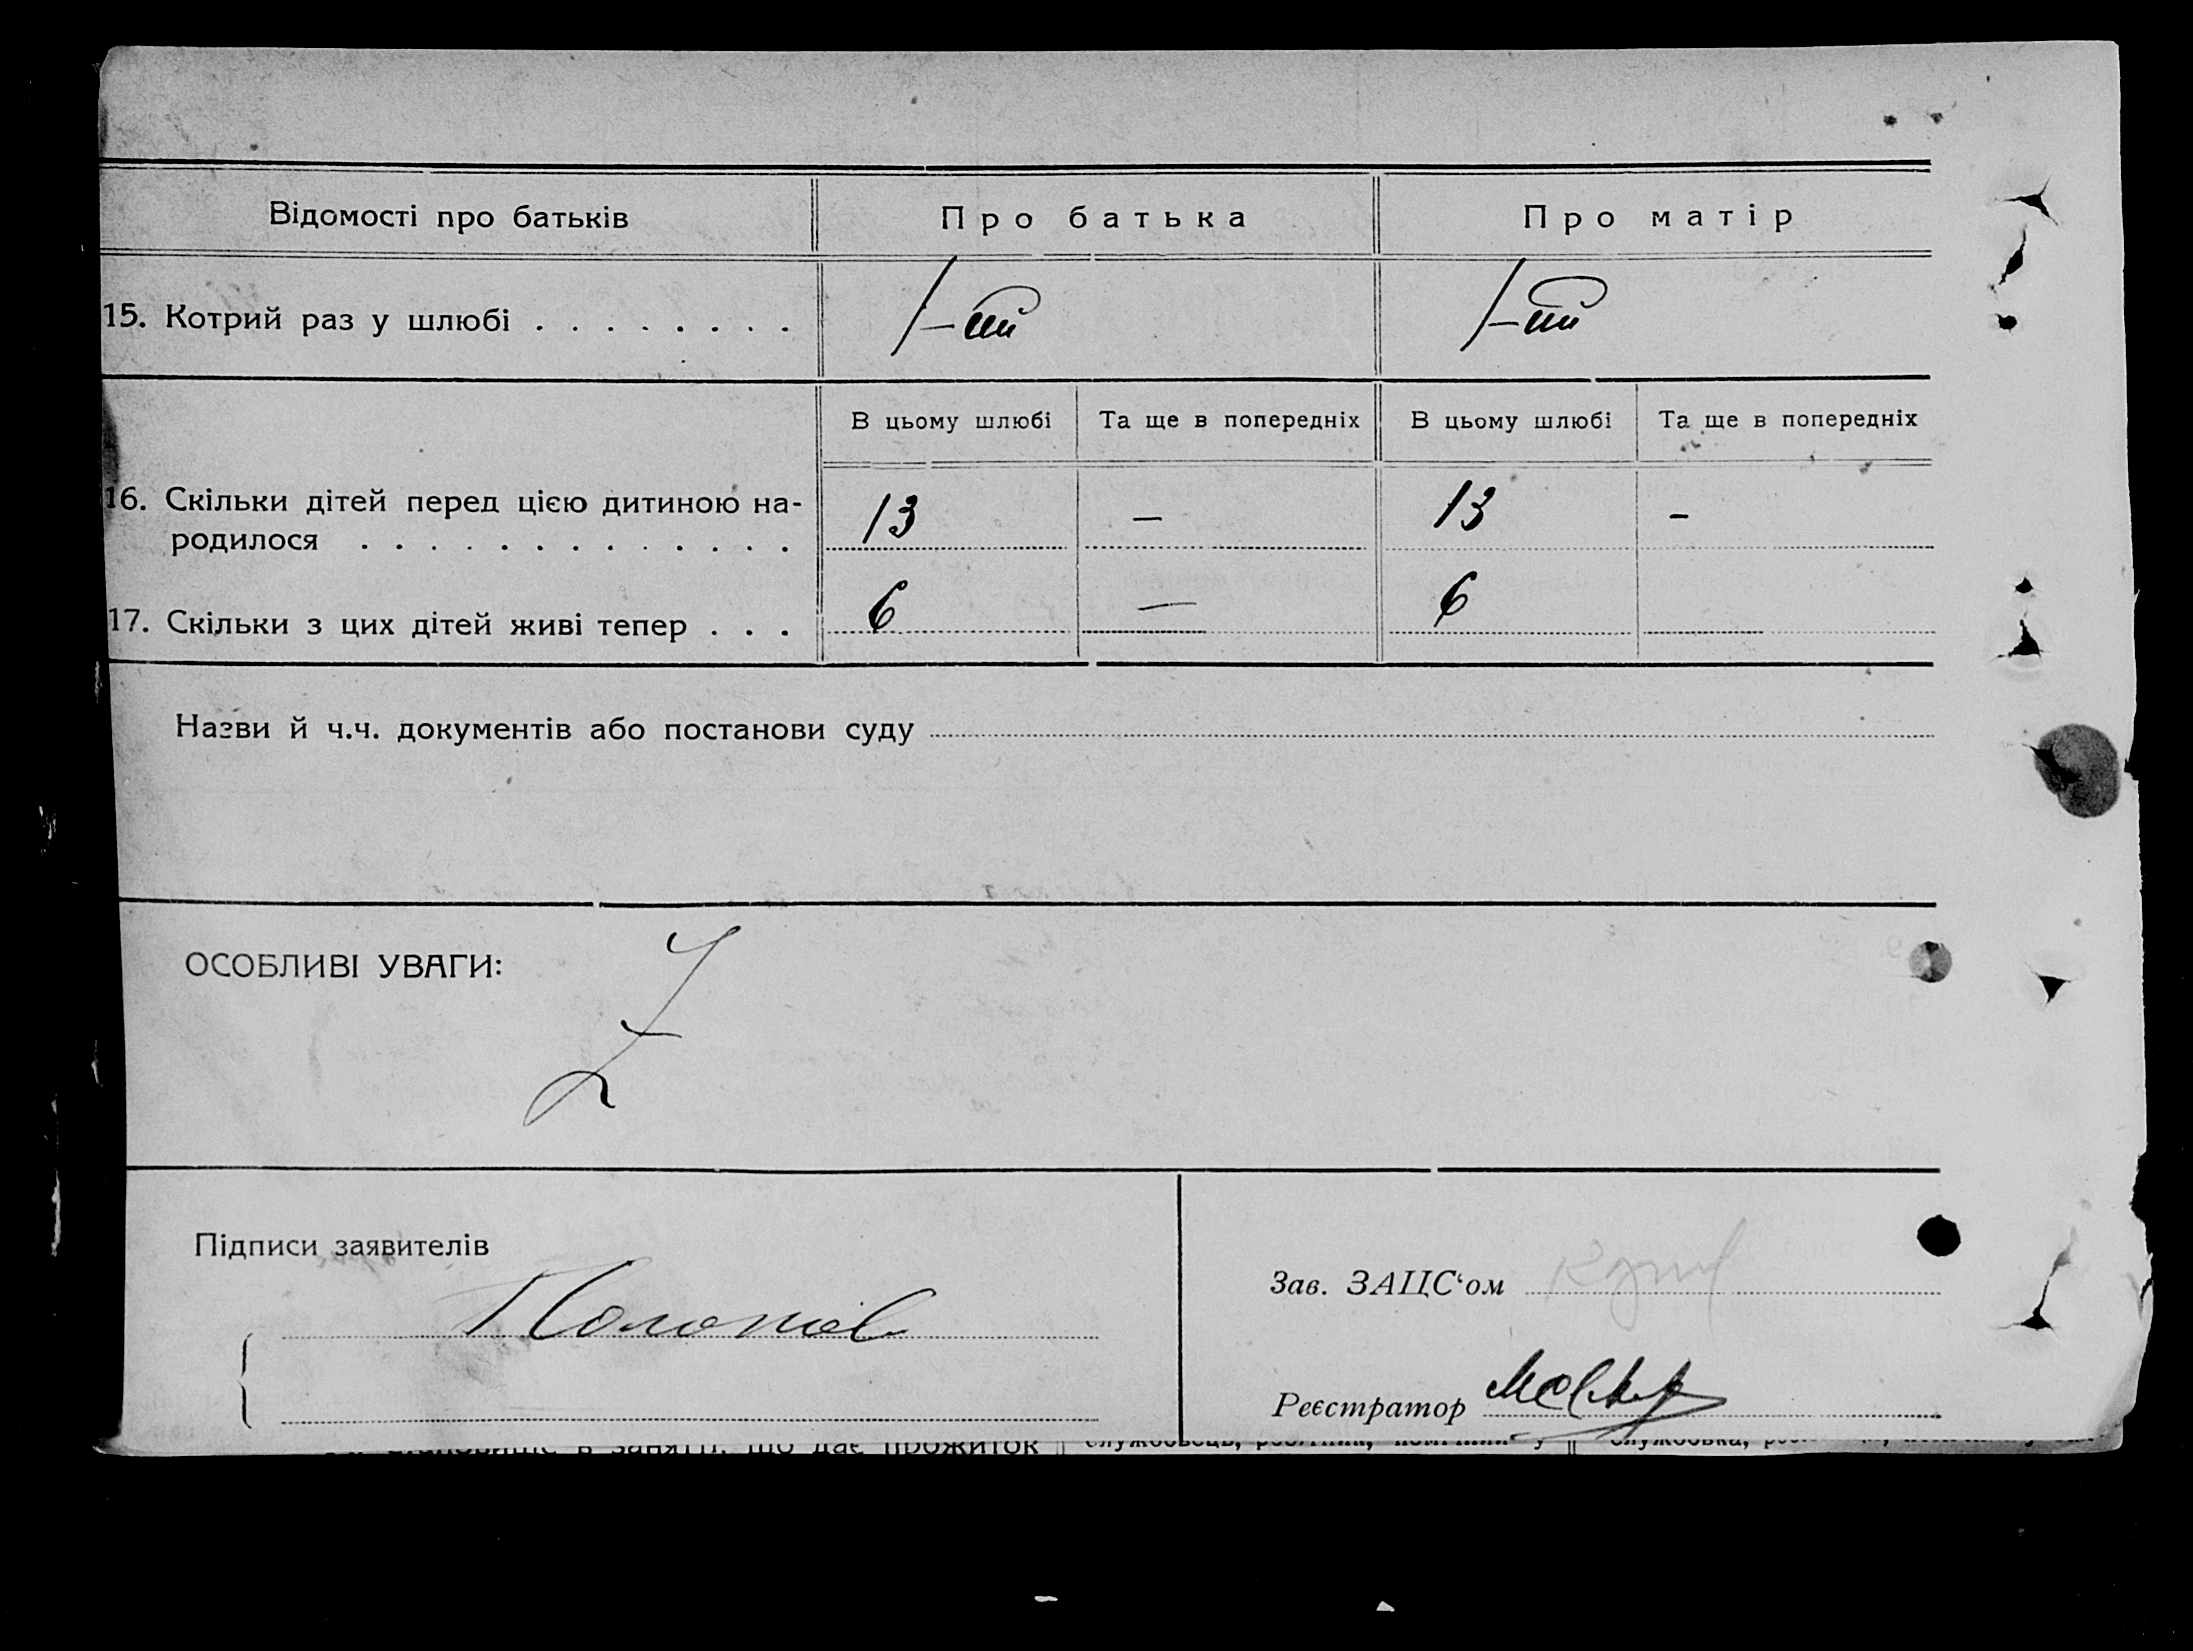 Відомості про батьків Про батька Про матір
15. Котрий раз у шлюбі . . . . . . . . 1-ий 1-ий
В цьому шлюбі Та ще в попередніх В цьому шлюбі Та ще в попередніх
16. Скільки дітей перед цією дитиною на-
родилося . . . . . . . . . . . . . 13 — 13 -
17. Скільки з цих дітей живі тепер . . . 6 — 6
Назви й ч.ч. документів або постанови суду
ОСОБЛИВІ УВАГИ: Z
Підписи заявителів
Зав. ЗАЦС‘ом
Реєстратор
в занятті, що дає прожиток